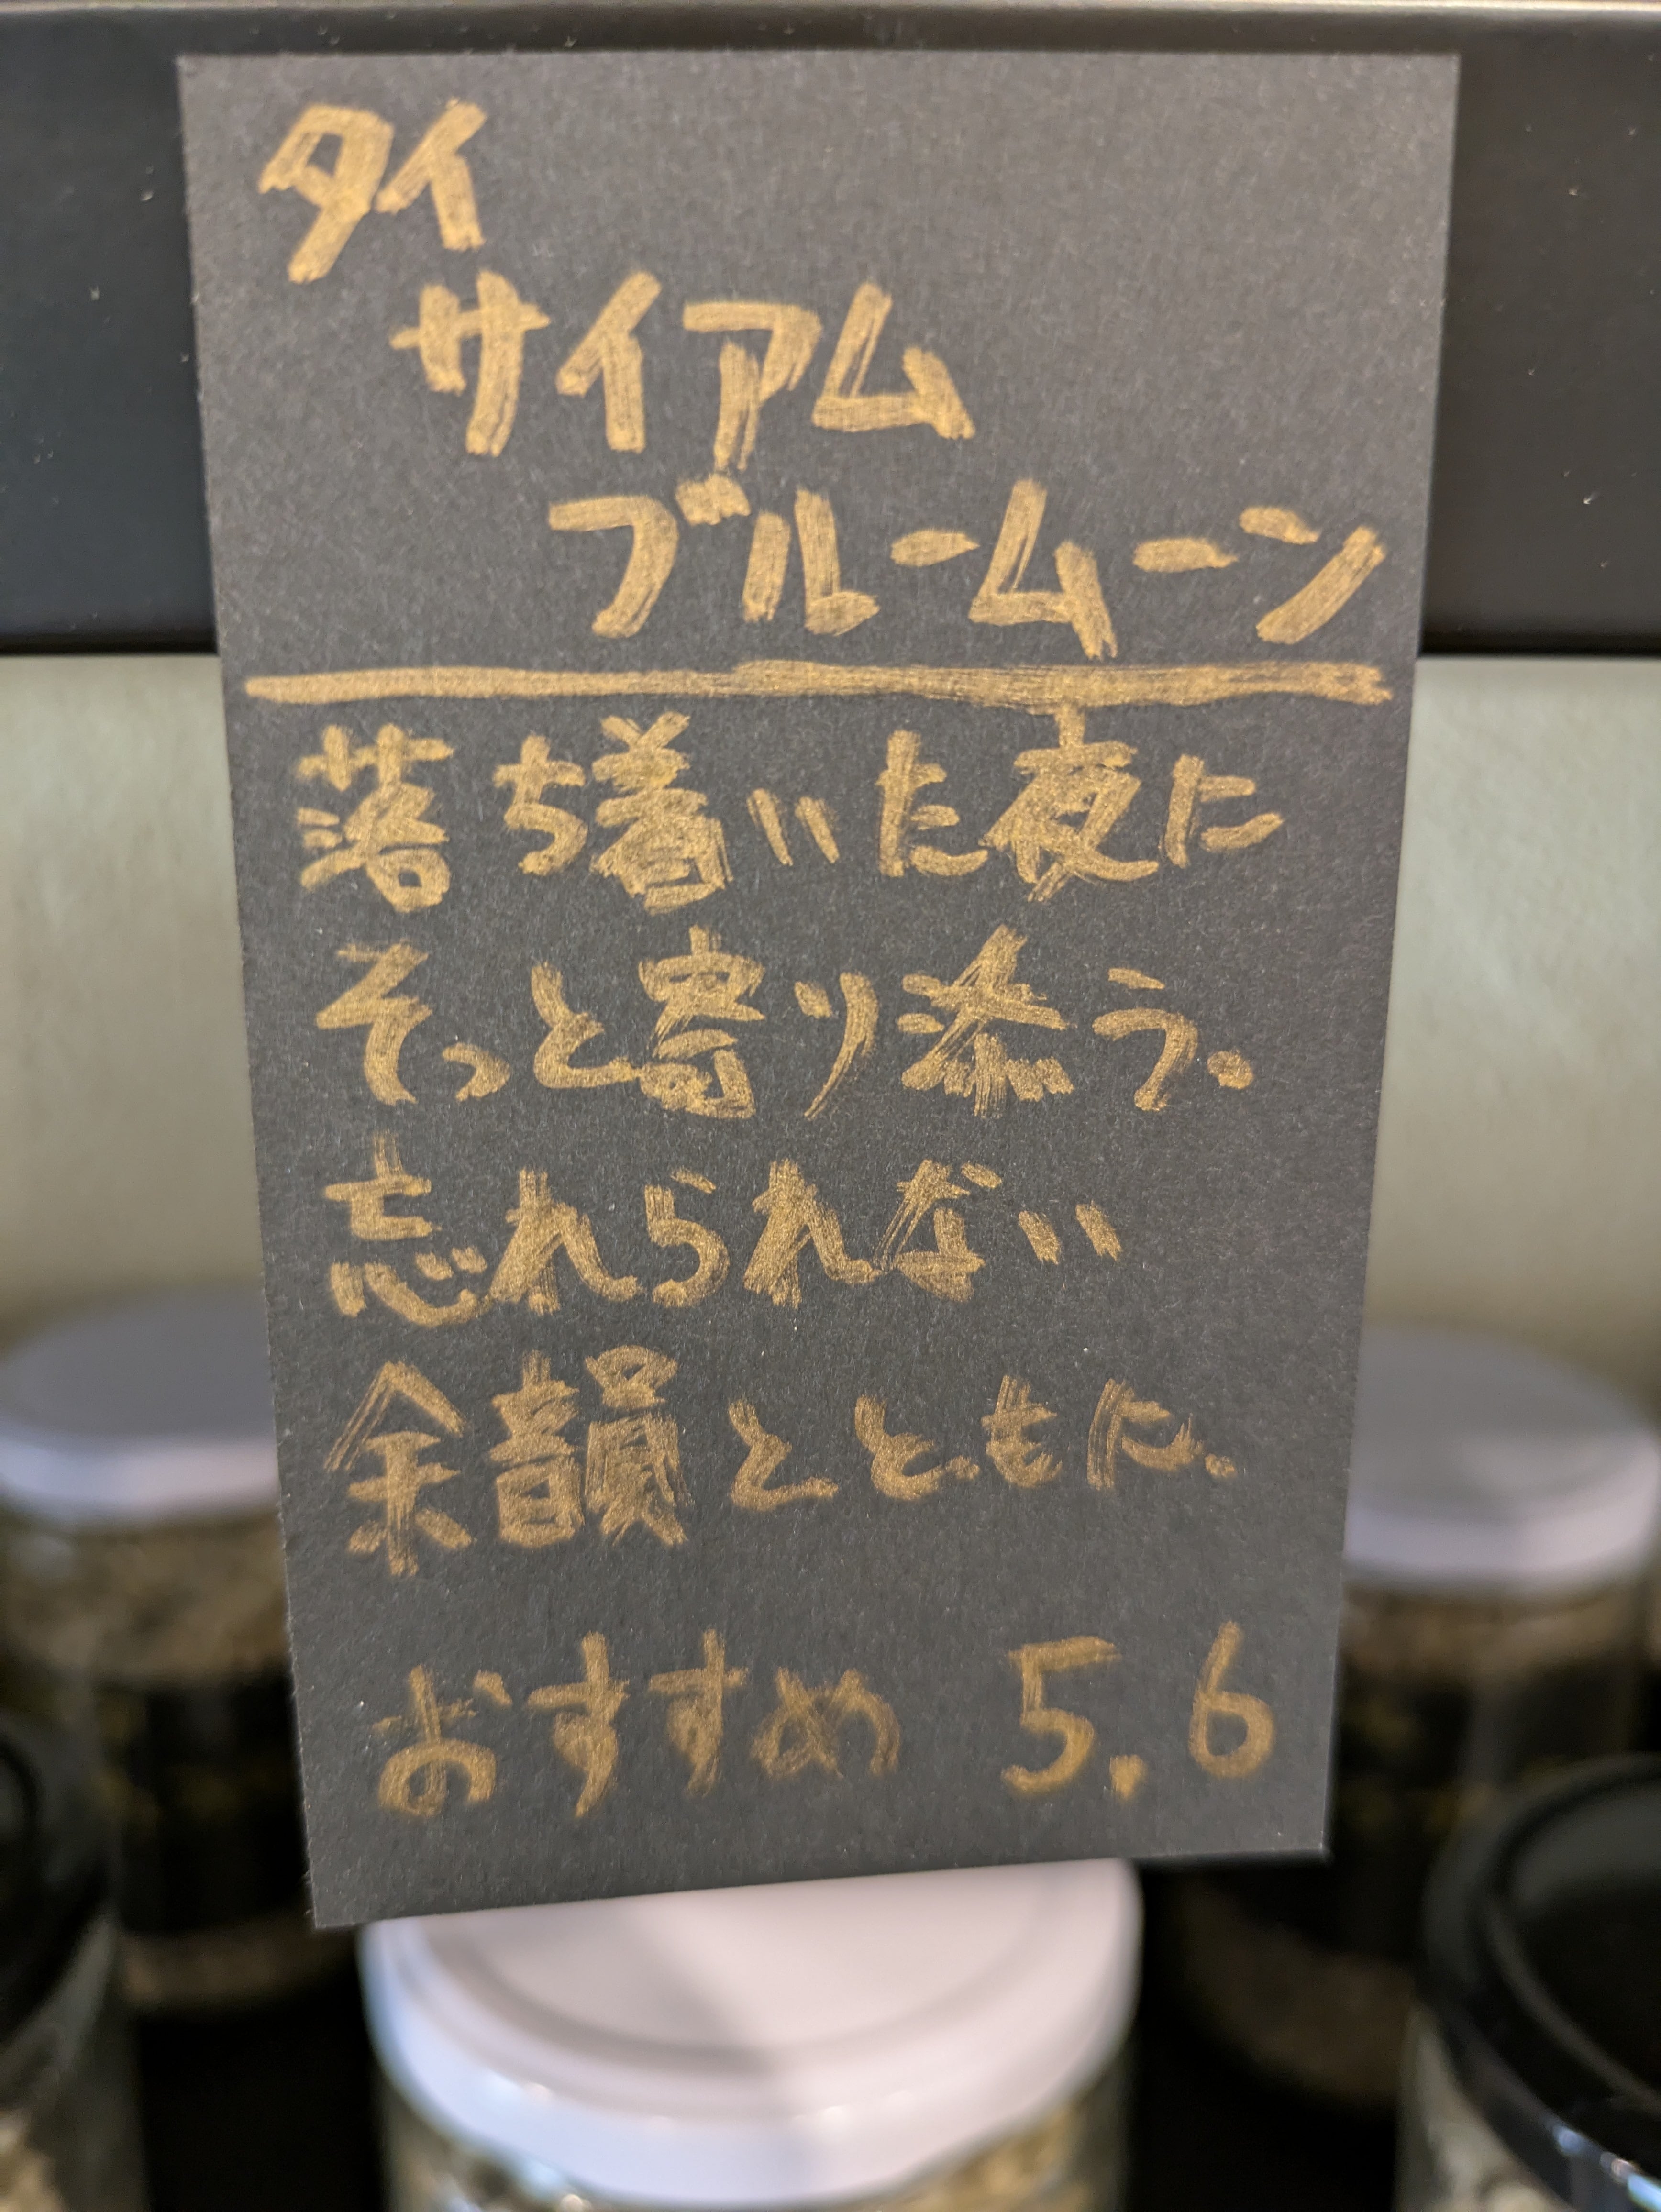 タイ
サイアム
ブルームーン
落ち着いた夜に
そっと寄り添う。
忘れられない
余韻とともに。
おすすめ 5.6